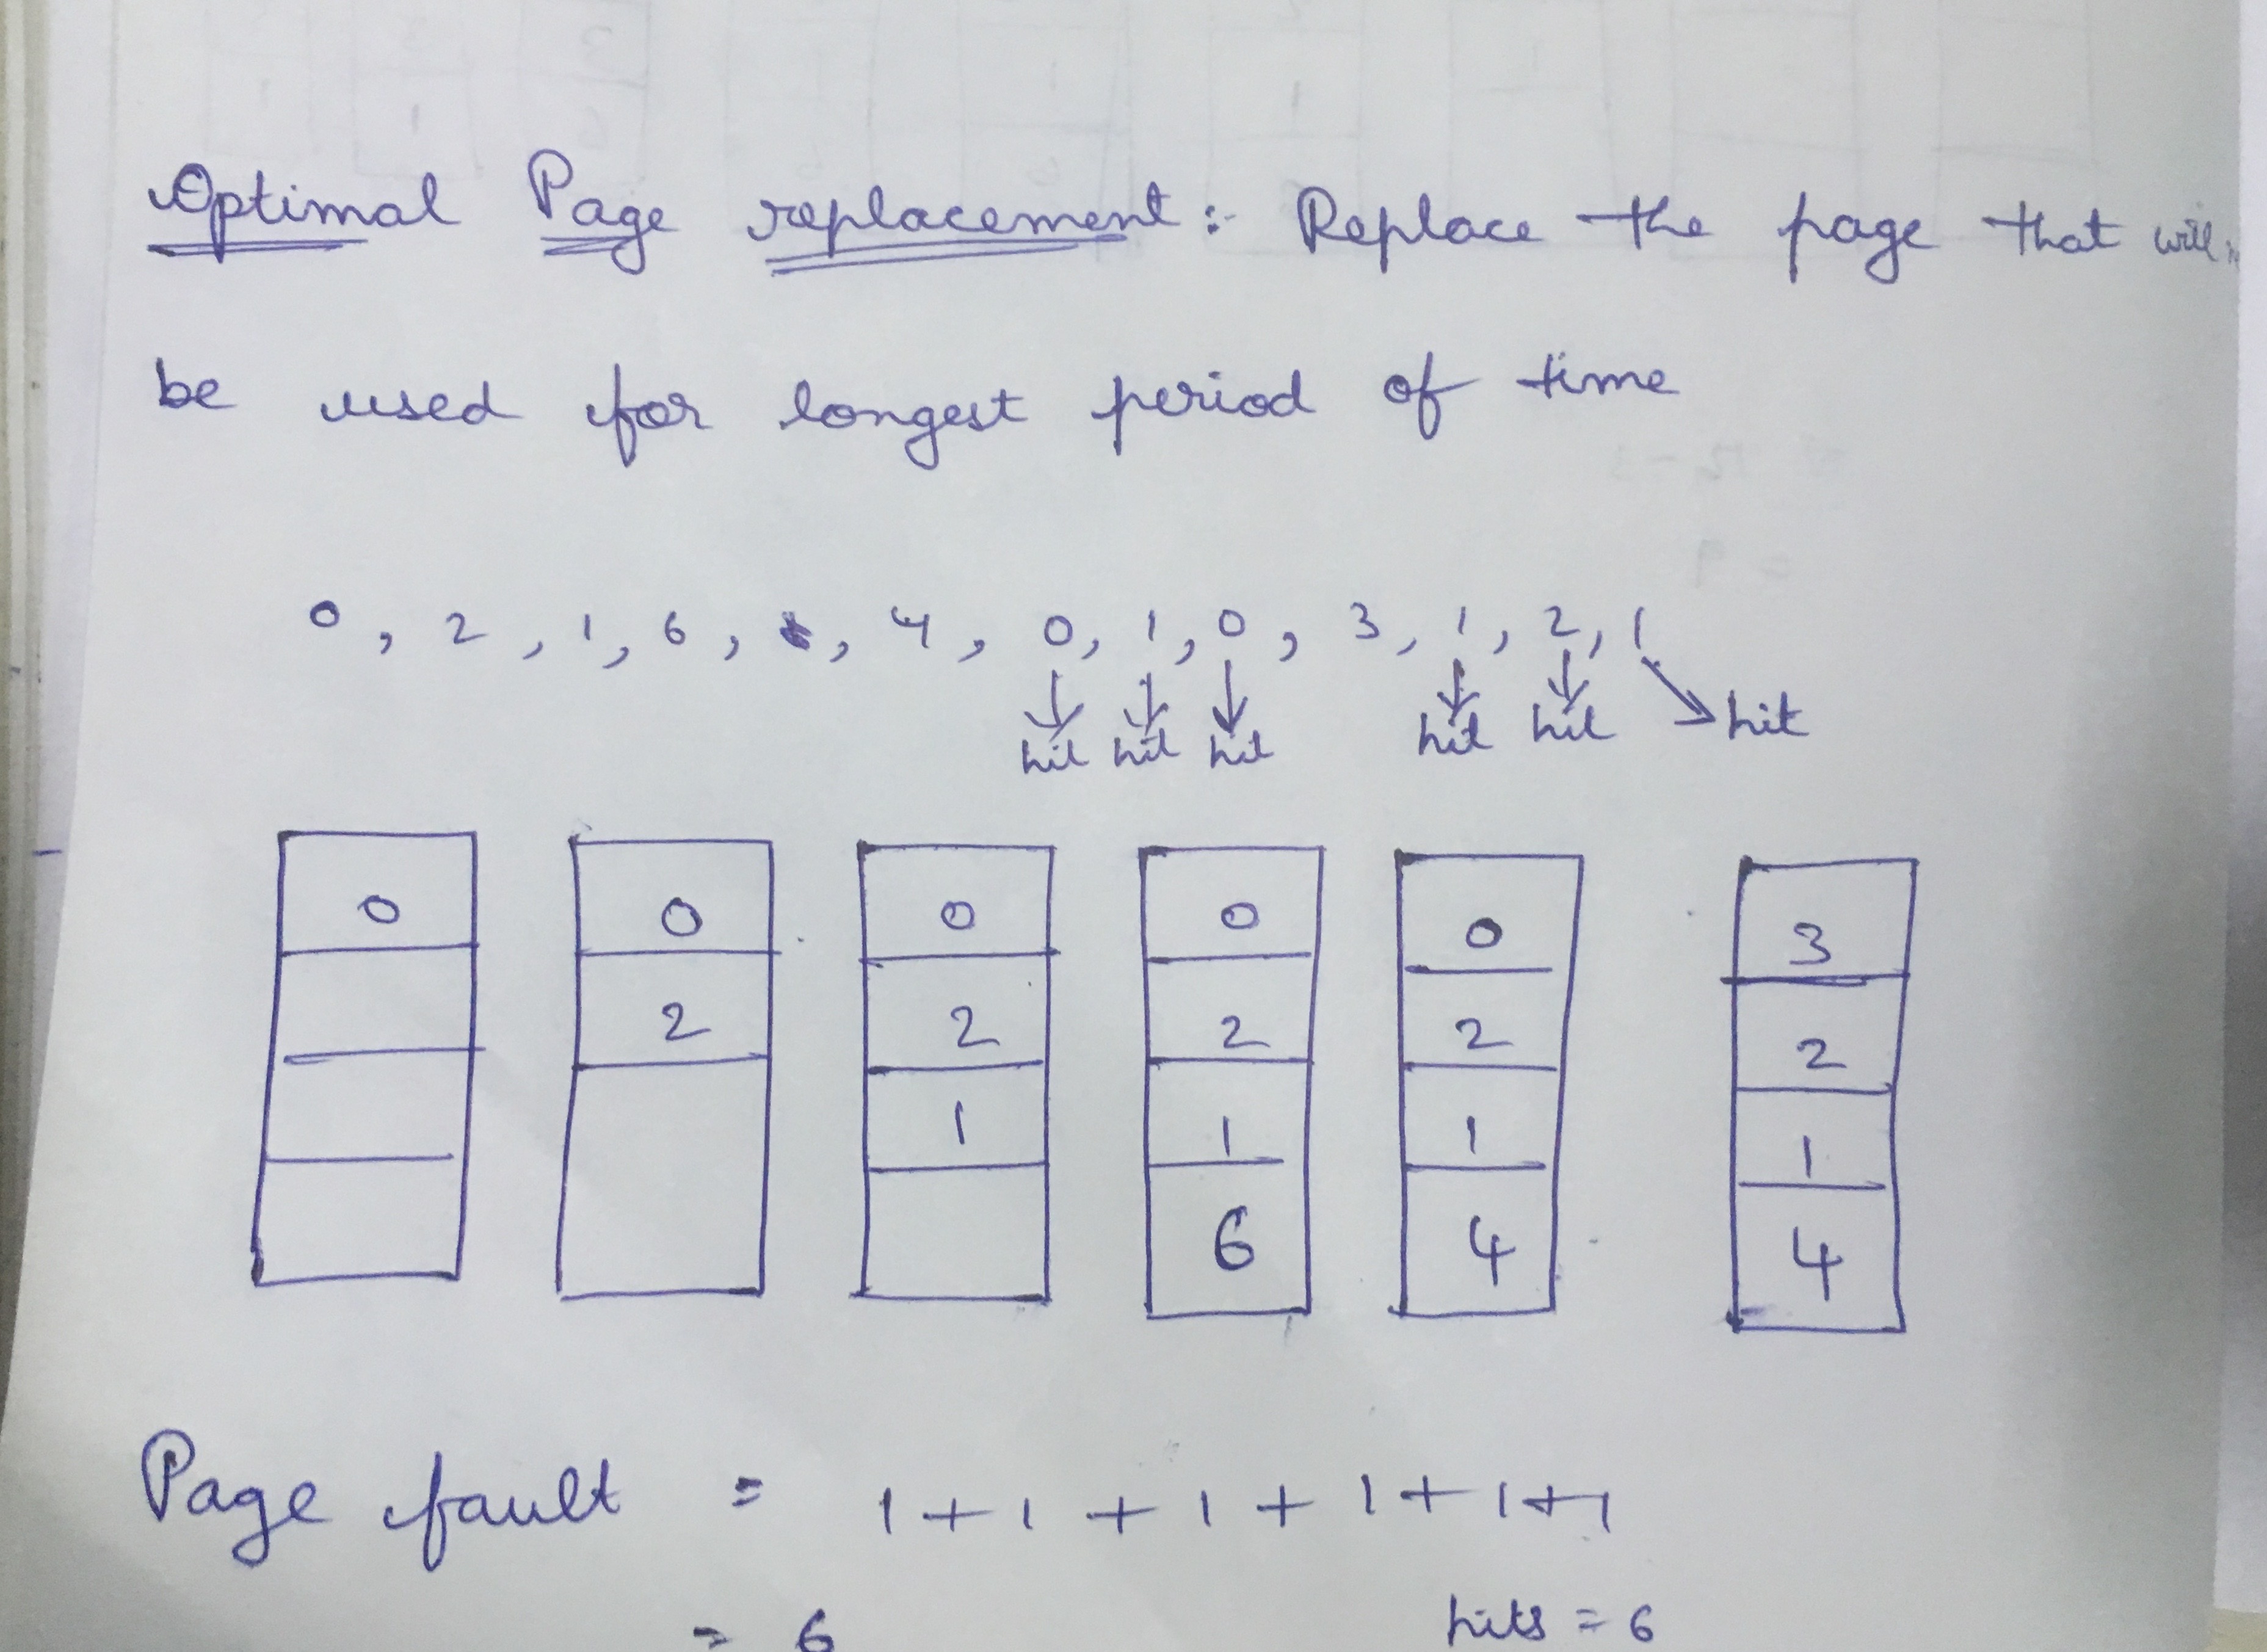 Optimal Page replacement :- Replace the page that will
be used for longest period of time
0, 2, 1, 6, , 4, 0, 1, 0, 3, 1, 2, 1
hit hit hit hit hit hit
0 0 0 0 0 3
2 2 2 2 2
1 1 1 1
6 4 4
Page fault = 1 + 1 + 1 + 1 + 1 + 1
= 6 hits = 6